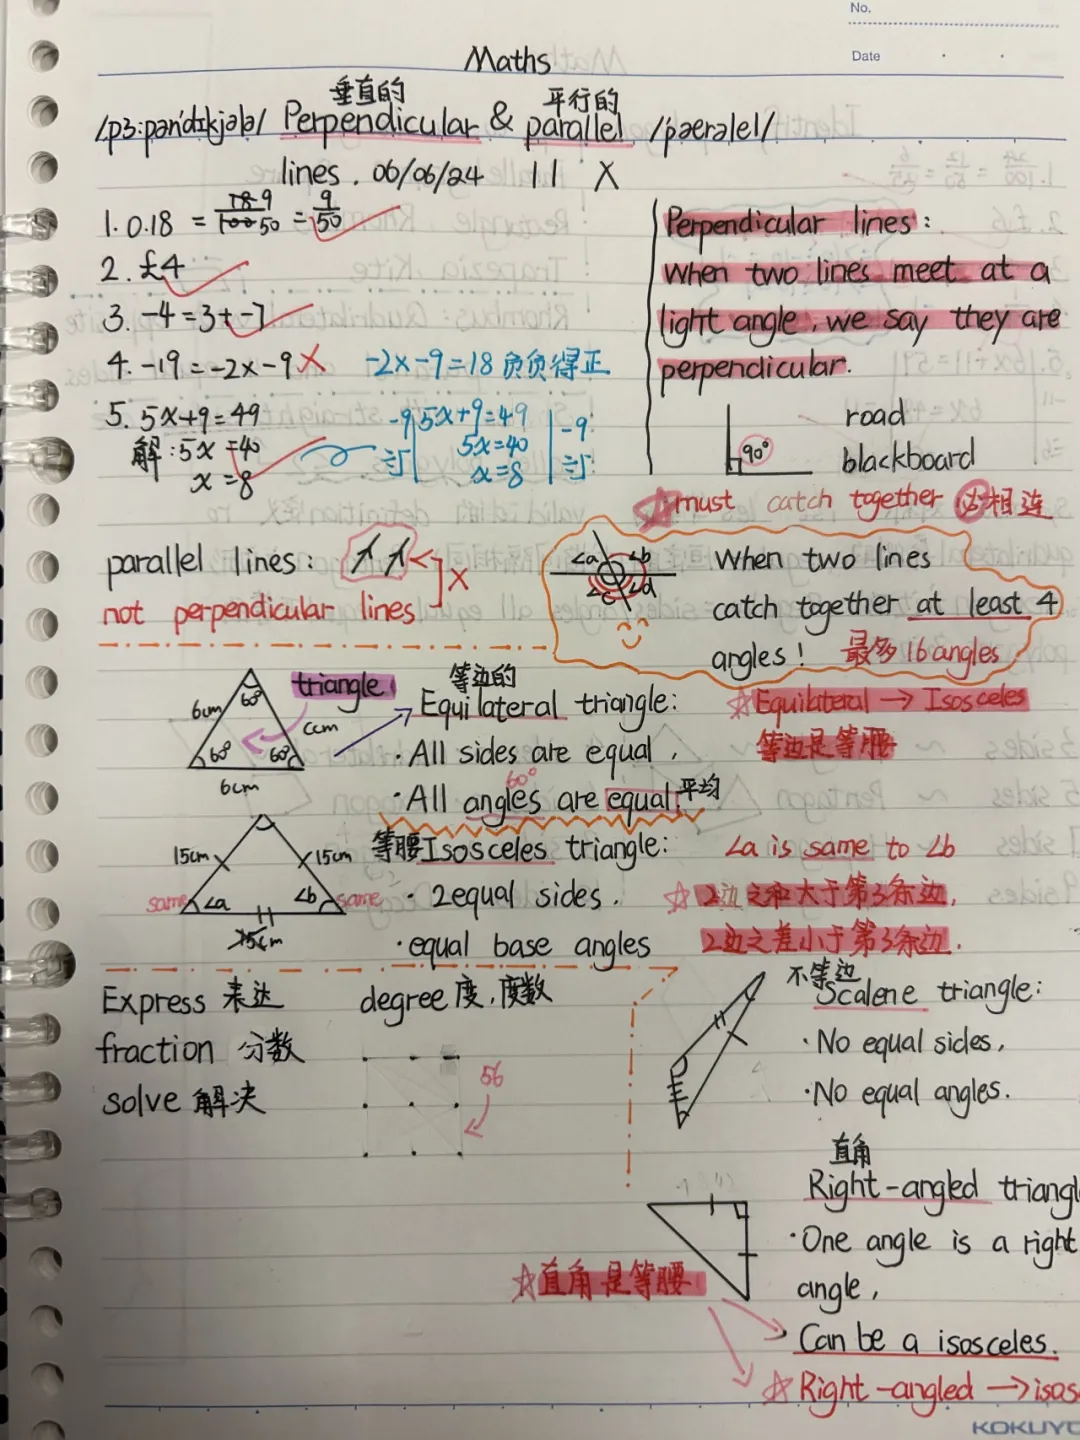 No.
Date
Maths
垂直的 平行的
/pɜ:pən'dɪkjələ/ Perpendicular & parallel /pærəlel/
lines. 06/06/24 11 X
1. 0.18 = 18 9 / 100 50 = 9/50
2. £4
3. -4=3+-7
4. -19=-2x-9 X -2x-9=18 负负得正
5. 5x+9=49
解:5x=40
x=8
-9 | 5x+9=49 | -9
÷5 | 5x=40 | ÷5
x=8
Perpendicular lines:
when two lines meet at a
light angle, we say they are
perpendicular.
90°
road
blackboard
☆must catch together 必相连
parallel lines:
not perpendicular lines X
∠a ∠b
∠c ∠d
when two lines
catch together at least 4
angles! 最多16angles
triangle
6cm 60° 6cm
60° 60°
6cm
等边的
Equilateral triangle:
·All sides are equal,
60°
·All angles are equal. 平均
☆Equilateral → Isosceles
等边是等腰
15cm 15cm
same ∠a ∠b same
15cm
等腰Isosceles triangle:
· 2equal sides.
·equal base angles
∠a is same to ∠b
☆2边之和大于第3条边,
2边之差小于第3条边.
Express 表达 degree 度,度数
fraction 分数
solve 解决
56
不等边
Scalene triangle:
·No equal sides,
·No equal angles.
直角
Right-angled triangl
·One angle is a right
angle,
☆直角是等腰
Can be a isosceles.
☆Right-angled →isos
KOKUYO